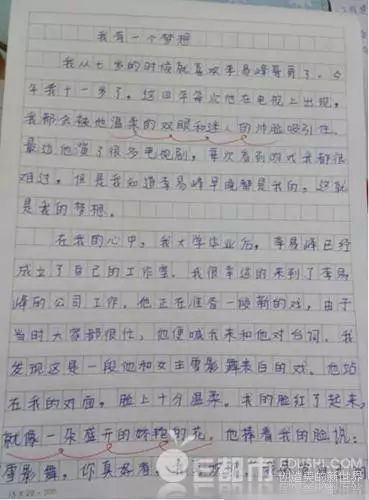 我有一个梦想
我从七岁的时候就喜欢李易峰哥哥了，今
年我十一岁了，这四年每次他在电视上出现，
我都会被他温柔的双眼和迷人的帅脸吸引住。
最近他演了很多电视剧，每次看到吻戏我都很
难过，但是我知道李易峰早晚都是我的，这就
是我的梦想。
在我的心中，我大学毕业后，李易峰已经
成立了自己的工作室，我很幸运的来到了李易
峰的公司工作。他正在准备一段新的戏，由于
当时大家都很忙，他便喊我来和他对台词。我
发现这是一段他和女主雪影舞表白的戏。他站
在我的对面，脸上十分温柔。我的脸红了起来，
就像一朵盛开的娇艳的花。他捧着我的脸说：
雪影舞，你真好看
三部市
创造美的新世界
15×22＝